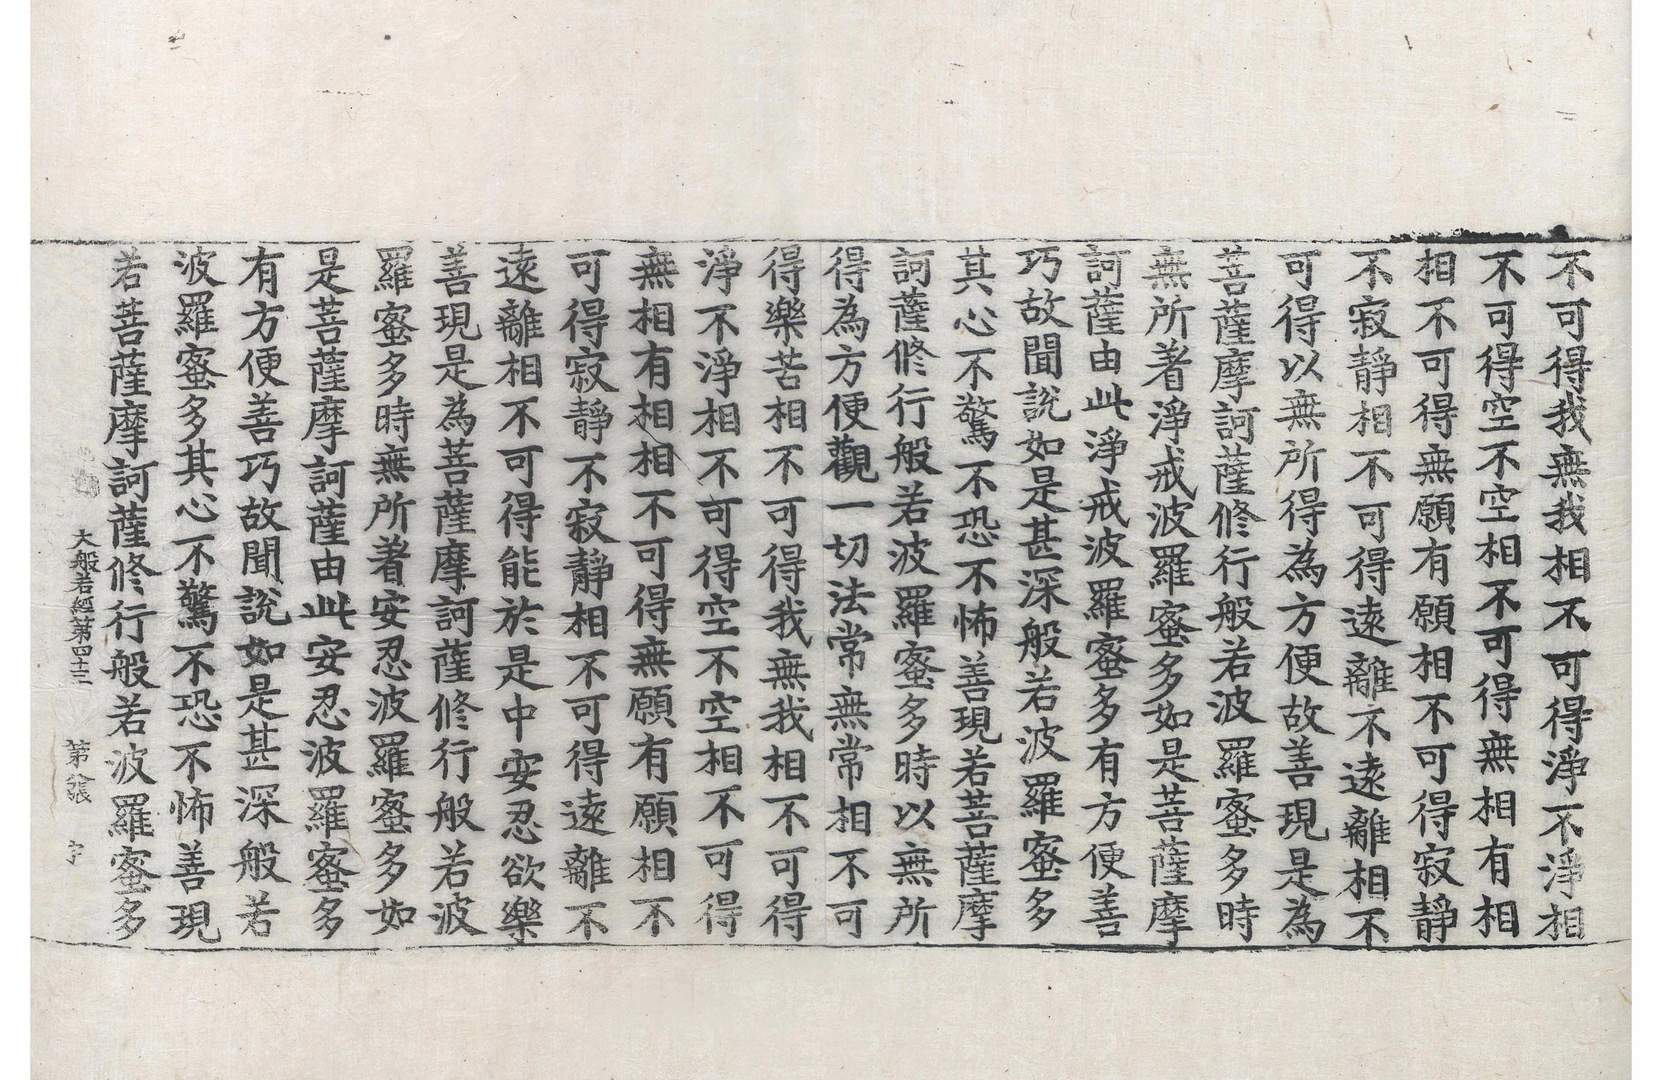 不可得我無我相不可得淨不淨相
不可得空不空相不可得無相有相
相不可得無願有願相不可得寂靜
不寂靜相不可得遠離不遠離相不
可得以無所得為方便故善現是為
菩薩摩訶薩修行般若波羅蜜多時
無所著淨戒波羅蜜多如是菩薩摩
訶薩由此淨戒波羅蜜多有方便善
巧故聞說如是甚深般若波羅蜜多
其心不驚不恐不怖善現若菩薩摩
訶薩修行般若波羅蜜多時以無所
得為方便觀一切法常無常相不可
得樂苦相不可得我無我相不可得
淨不淨相不可得空不空相不可得
無相有相相不可得無願有願相不
可得寂靜不寂靜相不可得遠離不
遠離相不可得能於是中安忍欲樂
善現是為菩薩摩訶薩修行般若波
羅蜜多時無所著安忍波羅蜜多如
是菩薩摩訶薩由此安忍波羅蜜多
有方便善巧故聞說如是甚深般若
波羅蜜多其心不驚不恐不怖善現
若菩薩摩訶薩修行般若波羅蜜多
大般若經第四十三 第 張 字